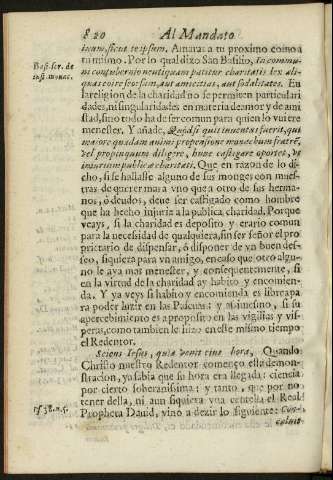 820 Al Mandato
tuum, sicut te ipsum. Amaras a tu proximo como a
ti mismo. Por lo qual dizo San Basilio, In commu-
Bas. ser. de
inst. monac.
ni contubernio neutiquam patitur charitatis lex ali-
quas coire seorsum, aut amicitias, aut sodalitates. En
la religion de la charidad no se permiten particulari
dades, ni singularidades en materia de amor y de ami
stad, sino todo ha de ser comun para quien lo viuiere
menester. Y añade, Quòd si quis inuentus fuerit, qui
maiore quadam animi propensione monachum fratrẽ,
vel propinquum diligere, hunc castigare oportet, de
iniuria publicæ charitati. Que en razon de lo di-
cho, si se hallasse alguno de sus monges con mues-
tras de querer mas a vno que a otro de sus herma-
nos, ò deudos, deue ser castigado como hombre
que ha hecho injuria a la publica charidad. Porque
veays, si la charidad es deposito y erario comun
para la necesidad de qualquiera, sin ser señor el pro
prietario de dispensar, ò disponer de vn buen des-
seo, siquiera para vn amigo, en caso que otro algu-
no le aya mas menester, y consequentemente, si
en la virtud de la charidad ay habito y encomien-
da. Y ya veys si habito y encomienda es librea pa
ra poder luzir en las Pascuas: y assimesmo, si su
apercebimiento es a proposito en las vigilias y vis-
peras, como tambien le hizo en este mismo tiempo
el Redentor.
Sciens Iesus, quia venit eius hora, Quando
Christo nuestro Redentor començo esta demon-
stracion, ya sabia que su hora era llegada: ciencia
por cierto soberanissima: y tanto, que por no
tener della, ni aun siquiera vna centella el Real
Ps. 38. n. 5.
Propheta Dauid, vino a dezir lo siguiente: Con-
caluit